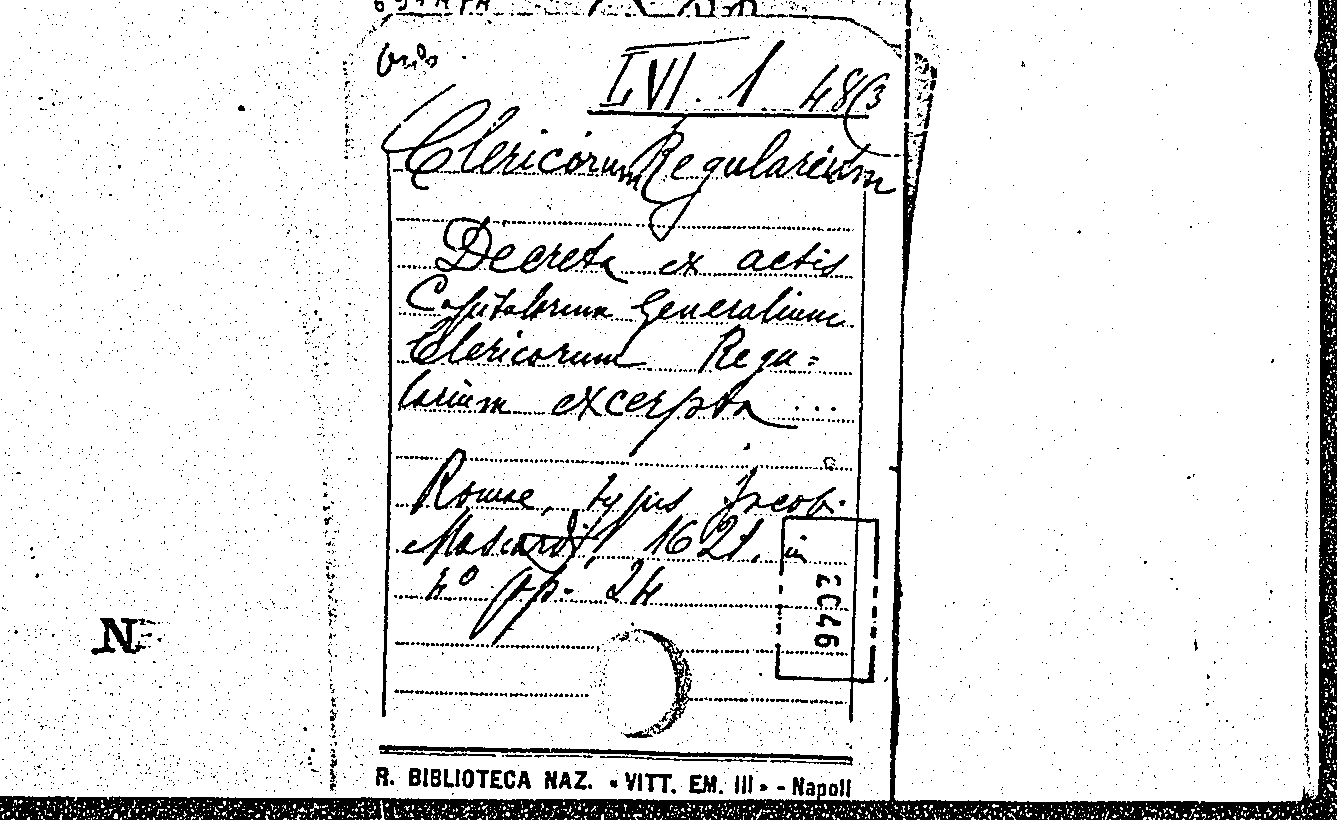 LVI. 1 48(3
Clericorum Regularium
Decreta ex actis
Capitulorum Generalium
Clericorum Regu=
larium excerpta ...
Romae, typis Jacob.
Mascardi, 1621. in
4° pp. 24
N
R. BIBLIOTECA NAZ. « VITT. EM. III » - Napoli